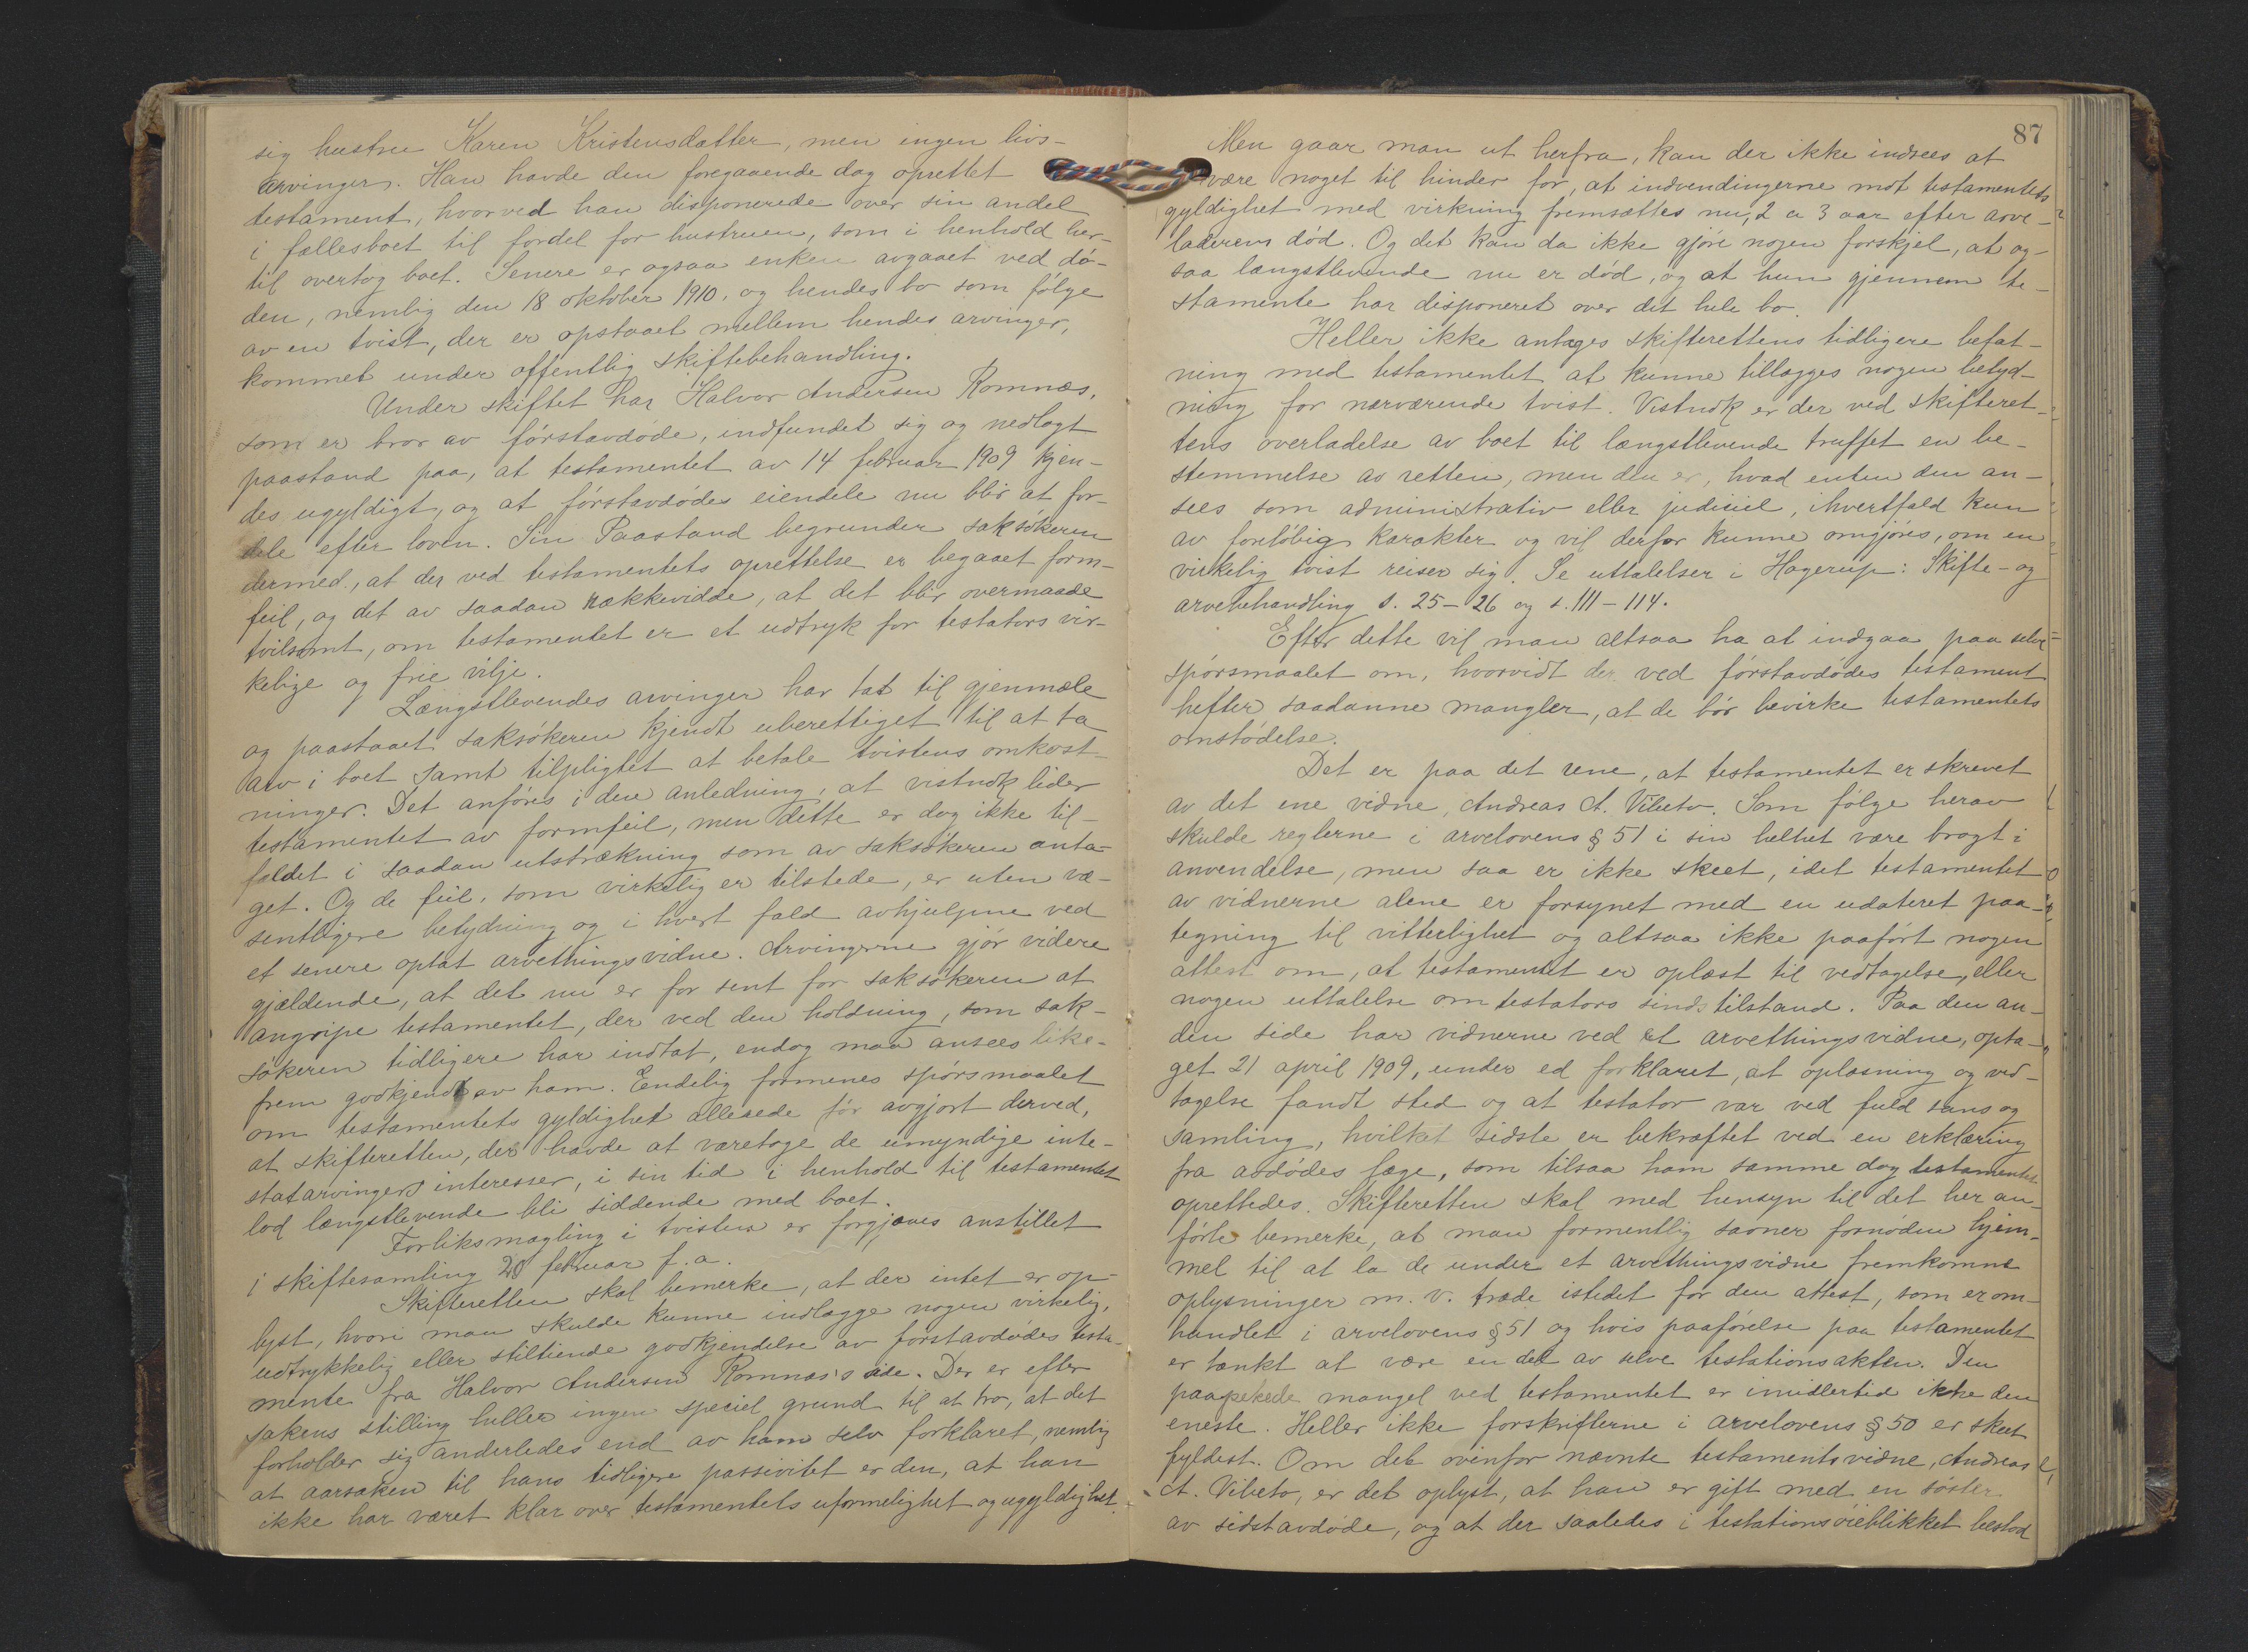 sig hustru Karen Kristensdatter, men ingen livs-
arvinger. Han havde den foregaaende dag oprettet
testament, hvorved han disponerede over sin andel
i fællesboet til fordel for hustruen, som i henhold her-
til overtog boet. Senere er ogsaa enken avgaaet ved dö-
den, nemlig den 18 oktober 1910, og hendes bo som fölge
av en tvist, der er opstaaet mellem hendes arvinger,
kommet under offentlig skiftebehandling.
Under skiftet har Halvor Andersen Romnæs,
som er bror av förstavdöde, indfundet sig og nedlagt
paastand paa, at testamentet av 14 februar 1909 kjen-
des ugyldigt, og at förstavdödes eiendele nu blir at for-
dele efter loven. Sin Paastand begrunder saksökeren
dermed, at der ved testamentets oprettelse er begaaet form-
feil, og det av saadan rækkevidde, at det blir overmaade
tvilsomt, om testamentet er et udtryk for testators vir-
kelige og frie vilje.
Længstlevendes arvinger har tat til gjenmæle
og paastaaet saksökeren kjendt uberettiget til at ta
arv i boet samt tilpligtet at betale tvistens omkost-
ninger. Det anföres i den anledning, at vistnok lider
testamentet av formfeil, men dette er dog ikke til-
faldet i saadan utstrækning som av saksökeren anta-
get. Og de feil, som virkelig er tilstede, er uten væ-
sentligere betydning og i hvert fald avhjulpne ved
et senere optat arvethingsvidne. Arvingerne gjör videre
gjældende, at det nu er for sent for saksökeren at
angripe testamentet, der ved den holdning, som sak-
sökeren tidligere har indtat, endog maa ansees like-
frem godkjendt av ham. Endelig formenes spörsmaalet
om testamentets gyldighet allerede för avgjort derved,
at skifteretten, der havde at varetage de umyndige inte-
statarvingers interesser, i sin tid i henhold til testamentet
lod længstlevende bli siddende med boet.
Forliksmægling i tvisten er forgjæves anstillet
i skiftesamling 20 februar f. a.
Skifteretten skal bemerke, at der intet er op-
lyst, hvori man skulde kunne indlægge nogen virkelig,
udtrykkelig eller stiltiende godkjendelse av förstavdödes testa-
mente fra Halvor Andersen Romnæs's side. Der er efter
sakens stilling heller ingen speciel grund til at tro, at det
forholder sig anderledes end av ham selv forklaret, nemlig
at aarsaken til hans tidligere passivitet er den, at han
ikke har været klar over testamentets uformelighet og ugyldighet.
87
Men gaar man ut herfra, kan der ikke indsees at
være noget til hinder for, at indvendingerne mot testamentets
gyldighet med virkning fremsættes nu, 2 a 3 aar efter arve-
laderens död. Og det kan da ikke gjöre nogen forskjel, at og-
saa længstlevende nu er död, og at hun gjennem te-
stamente har disponeret over det hele bo.
Heller ikke antages skifterettens tidligere befat-
ning med testamentet at kunne tillægges nogen betyd-
ning for nærværende tvist. Vistnok er der ved skifteret-
tens overladelse av boet til længstlevende truffet en be-
stemmelse av retten, men den er, hvad enten den an-
sees som administrativ eller judiciel, ihvertfald kun
av forelöbig karakter og vil derfor kunne omgjöres, om en
virkelig tvist reiser sig. Se uttalelser i Hagerup: Skifte- og
arvebehandling s. 25-26 og s. 111-114.
Efter dette vil man altsaa ha at indgaa paa selve
spörsmaalet om, hvorvidt der ved förstavdödes testament
hefter saadanne mangler, at de bör bevirke testamentets
omstödelse.
Det er paa det rene, at testamentet er skrevet
av det ene vidne, Andreas A. Vibeto. Som fölge herav
skulde reglerne i arvelovens § 51 i sin helhet være bragt i
anvendelse, men saa er ikke skeet, idet testamentet
av vidnerne alene er forsynet med en udateret paa-
tegning til vitterlighet og altsaa ikke paafört nogen
attest om, at testamentet er oplæst til vedtagelse, eller
nogen uttalelse om testators sindstilstand. Paa den an-
den side har vidnerne ved et arvethingsvidne, opta-
get 21 april 1909, under ed forklaret, at oplæsning og ved-
tagelse fandt sted og at testator var ved fuld sans og
samling, hvilket sidste er bekræftet ved en erklæring
fra avdödes læge, som tilsaa ham samme dag testamentet
oprettedes. Skifteretten skal med hensyn til det her an-
förte bemerke, at man formentlig savner fornöden hjem-
mel til at la de under et arvethingsvidne fremkomne
oplysninger m. v. træde istedet for den attest, som er om-
handlet i arvelovens § 51 og hvis paaförelse paa testamentet
er tænkt at være en del av selve testationsakten. Den
paapekede mangel ved testamentet er imidlertid ikke den
eneste. Heller ikke forskrifterne i arvelovens § 50 er skeet
fyldest. Om det ovenfor nævnte testamentsvidne, Andreas
A. Vibeto, er det oplyst, at han er gift med en söster
av sidstavdöde, og at der saaledes i testationsöieblikket bestod